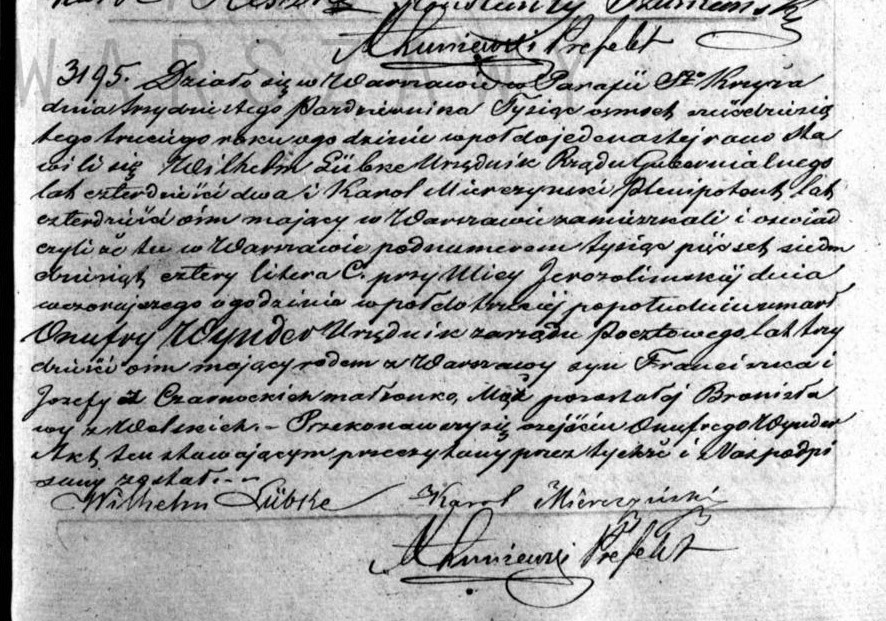 Konstanty
A Kuniewski Prefekt
WARSZAWY
3195. Działo się w Warszawie w Parafii Sgo Krzyża
dnia trzydziestego Pazdziernika Tysiąc osmset sześćdziesią
tego trzeciego roku o godzinie wpół do jedenastej rano Sta
wili się Wilhelm Lübke Urzędnik Rządu Gubernialnego
lat czterdzieści dwa i Karol Mierczynski Plenipotent, lat
czterdzieści ośm mający w Warszawie zamieszkali i oswiad
czyli że tu w Warszawie pod numerem tysiąc pięćset siedm
dziesiąt cztery litera C. przy Ulicy Jerozolimskiej dnia
wczorajszego o godzinie wpół do trzeciej popołudniu umarł
Onufry Wynder Urzędnik zarządu Pocztowego, lat trzy
dzieści ośm mający rodem z Warszawy syn Franciszka i
Jozefy z Czarnockich małżonków, Mąż pozostałej Bronisła
wy z Wolskich. – Przekonawszy się o zejściu Onufrego Wynder
Akt ten stawającym przeczytany przez tychże i Nas podpi
sany został. –
Wilhelm Lübke Karol Mierczyński
A Kuniewski Prefekt